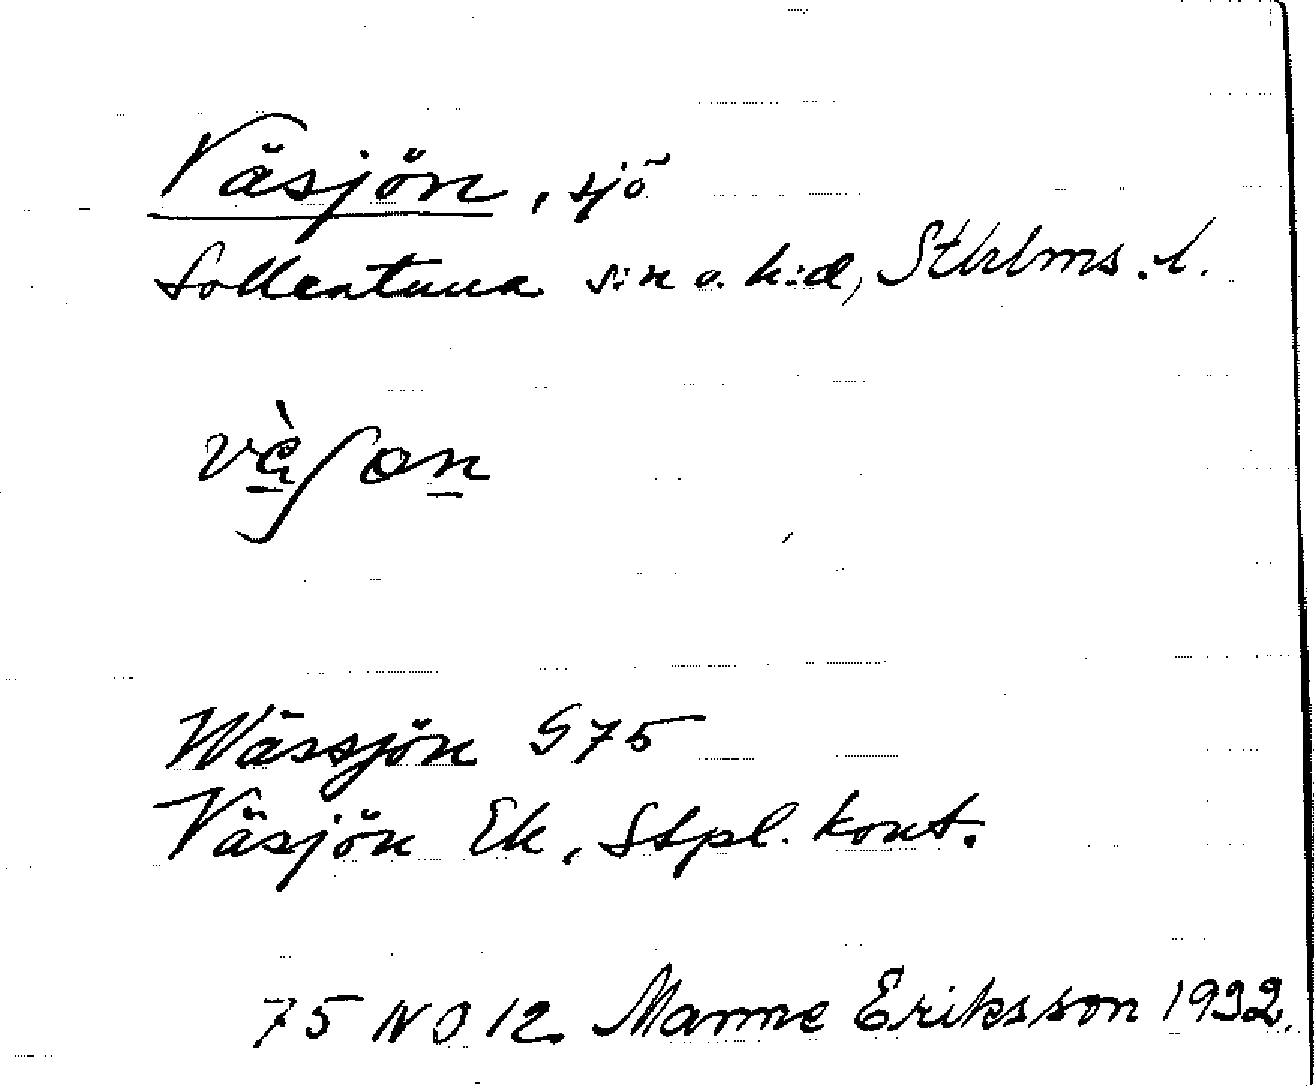 Väsjön, sjö
Sollentuna s:n o. h:d, Sthlms. l.
vὲ̠ʃon̠
Wässjön G75
Väsjön Ek, Stpl. kont.
75 NO 12 Manne Eriksson 1932.